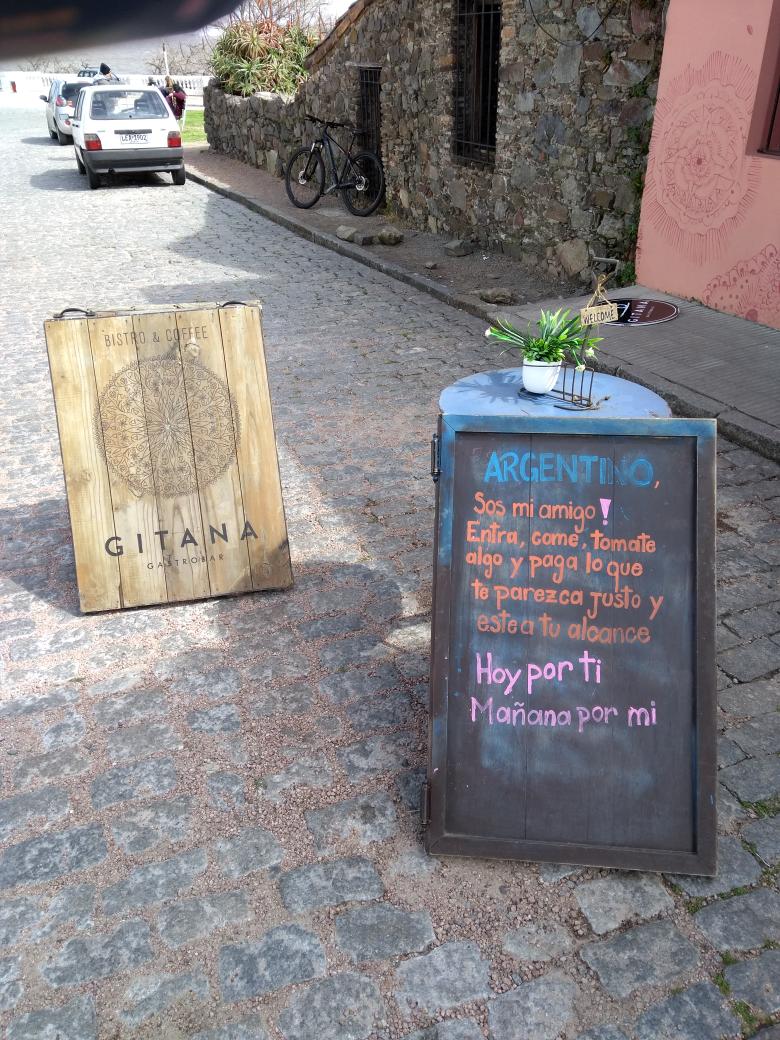 BISTRO & COFFEE
GITANA
GASTROBAR
WELCOME
GITANA
ARGENTINO,
Sos mi amigo!
Entra, come, tomate
algo y paga lo que
te parezca justo y
este a tu alcance
Hoy por ti
Mañana por mi